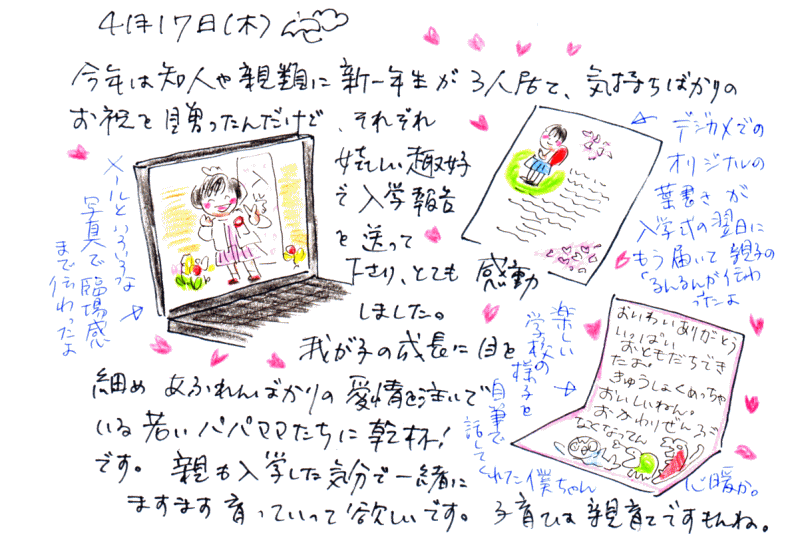 4月17日(木)
今年は知人や親類に新一年生が3人居て、気持ちばかりの
お祝を贈ったんだけど、それぞれ
嬉しい趣好
で入学報告
を送って
下さり、とても感動
しました。
我が子の成長に目を
細め あふれんばかりの愛情を注いで
いる若いパパママたちに乾杯!
です。親も入学した気分で一緒に
ますます育っていって欲しいです。子育ては親育てですもんね。
メールといろいろな
写真で臨場感
まで伝わったよ
入学
デジカメでの
オリジナルの
葉書きが
入学式の翌日に
もう届いて親子の
るんるんが伝わ
ったよ
楽しい
学校の
様子を
自筆で
話してくれた僕ちゃん
心暖か。
おいわいありがとう
いっぱい
おともだちでき
たよ。
きゅうしょくめっちゃ
おいしいねん。
おかわりぜんぶ
なくなってん